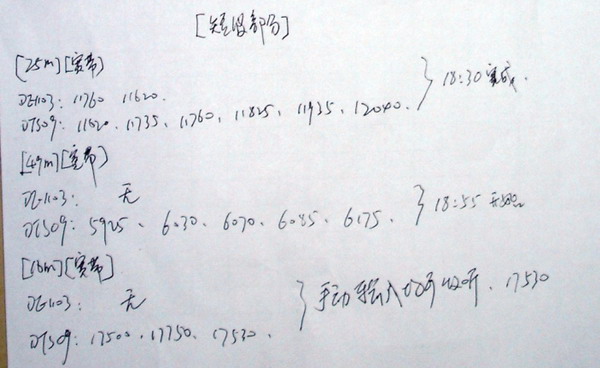 [短波部分]
[25m][宽带]
DE1103: 11760 11620.
DTS09: 11620、11735、11760、11825、11935、12040. } 18:30 完成.
[49m][宽带]
DE1103: 无
DTS09: 5925、6030、6070、6085、6175、 } 18:55
[16m][宽带]
DE1103: 无
DTS09: 17500、17750、17530. } 手动 收听、17530